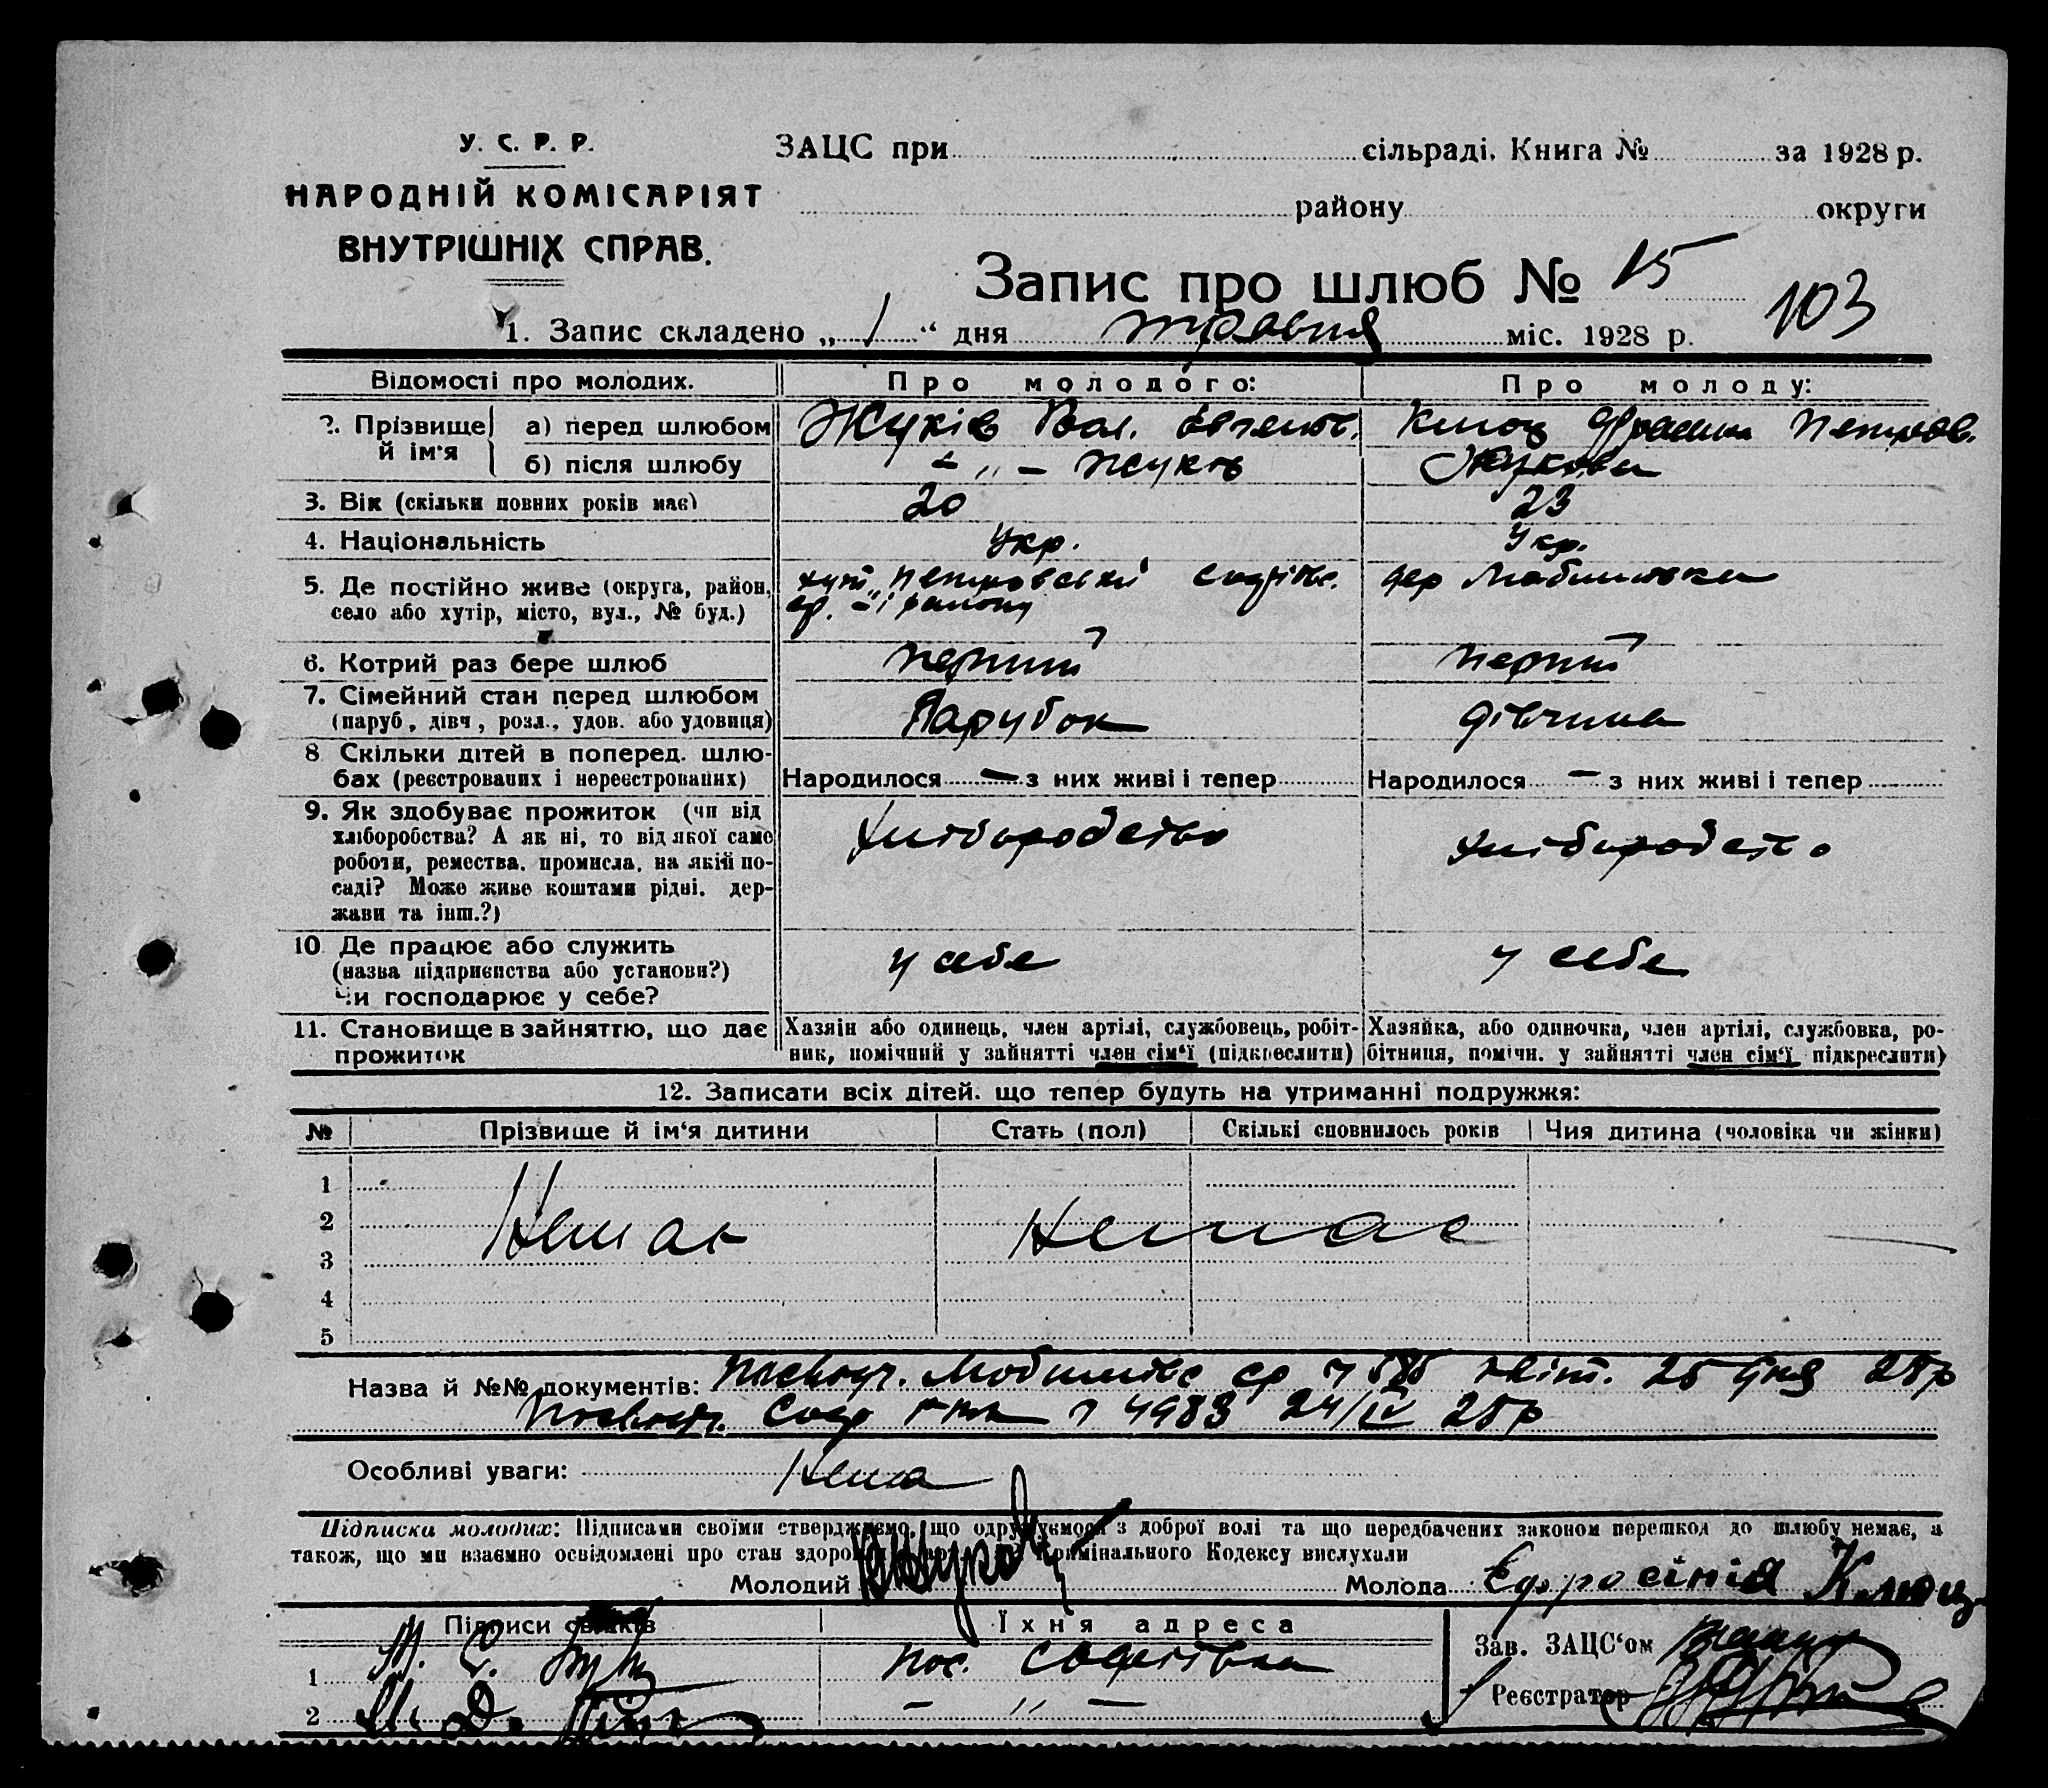 У. С. Р. Р.
НАРОДНІЙ КОМІСАРІЯТ
ВНУТРІШНІХ СПРАВ.
ЗАЦС при сільраді. Книга № за 1928 р.
району округи
Запис про шлюб № 15
103
1. Запис складено „ 1 “ дня травня міс. 1928 р.
Відомості про молодих. Про молодого: Про молоду:
2. Прізвище й ім'я а) перед шлюбом Жуків Вал. Клюц Фросина Петров.
б) після шлюбу - „ - Жуків Жукова
3. Вік (скільки повних років має) 20 23
4. Національність Укр. Укр.
5. Де постійно живе (округа, район, село або хутір, місто, вул., № буд.) хут. Петровський району дер
6. Котрий раз бере шлюб перший перший
7. Сімейний стан перед шлюбом (паруб., дівч., розл., удов. або удовиця) Парубок дівчина
8 Скільки дітей в поперед. шлюбах (реєстрованих і нереєстрованих) Народилося — з них живі і тепер Народилося — з них живі і тепер
9. Як здобуває прожиток (чи від хліборобства? А як ні, то від якої само роботи, ремества, промисла, на якій посаді? Може живе коштами рідні. держави та інш.?) хліборобство хліборобство
10 Де працює або служить (назва підприєнства або установи?) Чи господарює у себе? у себе у себе
11. Становище в зайняттю, що дає прожиток Хазяін або одинець, член артілі, службовець, робітник, помічний у зайнятті член сім'ї (підкреслити) Хазяйка, або одиночка, член артілі, службовка, робітниця, помічн. у зайнятті член сім'ї підкреслити)
12. Записати всіх дітей. що тепер будуть на утриманні подружжя:
№ Прізвище й ім'я дитини Стать (пол) Скількі сповнилось років Чия дитина (чоловіка чи жінки)
1
2 Немає Немає —
3
4
5
Назва й №№ документів: ср квіт. 25 дня 28р
4983 24/IV 28р
Особливі уваги: Нема
Підписка молодих: Підписами своїми стверджуємо, що одружуємося з доброї волі та що передбачених законом перешкод до шлюбу немає, а
також, що ми взаємно освідомлені про стан здоров Кримінального Кодексу вислухали
Молодий Молода Ефросінія Клюц
Підписи свідків Їхня адреса Зав. ЗАЦС'ом
1 пос. Софіївка
Реєстратор
2 — „ —